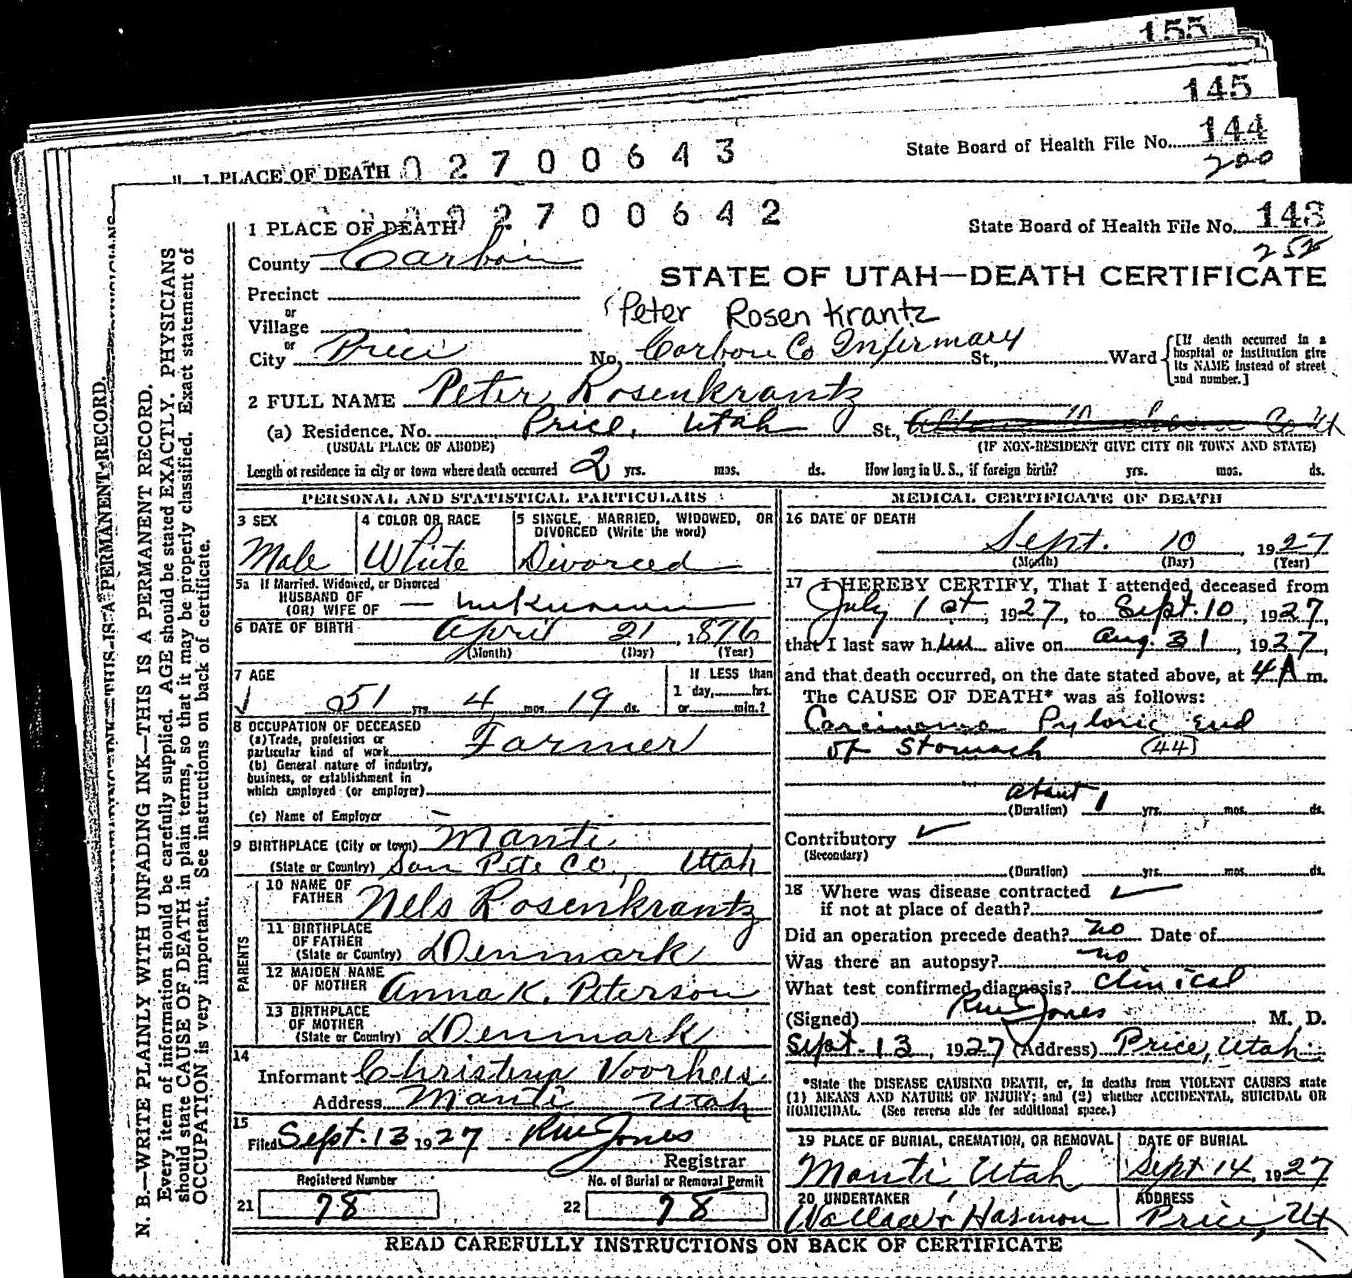 155
145
State Board of Health File No. 144
200
1 PLACE OF DEATH 02700643
02700642
1 PLACE OF DEATH
State Board of Health File No. 143
252
County Carbon
STATE OF UTAH—DEATH CERTIFICATE
Precinct
or
Village
Peter Rosenkrantz
or
City Price No. Carbon Co Infirmary St., Ward
[If death occurred in a hospital or institution give its NAME instead of street and number.]
2 FULL NAME Peter Rosenkrantz
(a) Residence. No. Price, Utah St.,
(USUAL PLACE OF ABODE) (IF NON-RESIDENT GIVE CITY OR TOWN AND STATE)
Length of residence in city or town where death occurred 2 yrs. mos. ds. How long in U. S., if foreign birth? yrs. mos. ds.
PERSONAL AND STATISTICAL PARTICULARS
3 SEX 4 COLOR OR RACE 5 SINGLE, MARRIED, WIDOWED, OR DIVORCED (Write the word)
Male White Divorced
5a If Married, Widowed, or Divorced
HUSBAND OF
(OR) WIFE OF — unknown
6 DATE OF BIRTH April 21, 1876
(Month) (Day) (Year)
7 AGE If LESS than
1 day, hrs.
51 yrs. 4 mos. 19 ds. or min.?
8 OCCUPATION OF DECEASED
(a) Trade, profession or
particular kind of work Farmer
(b) General nature of industry,
business, or establishment in
which employed (or employer)
(c) Name of Employer
9 BIRTHPLACE (City or town) Manti
(State or Country) San Pete Co, Utah
PARENTS
10 NAME OF
FATHER Nels Rosenkrantz
11 BIRTHPLACE
OF FATHER
(State or Country) Denmark
12 MAIDEN NAME
OF MOTHER Anna K. Peterson
13 BIRTHPLACE
OF MOTHER
(State or Country) Denmark
14
Informant Christena Voorhees
Address Manti Utah
15
Filed Sept. 13 1927
Registrar
Registered Number No. of Burial or Removal Permit
21 78 22 78
MEDICAL CERTIFICATE OF DEATH
16 DATE OF DEATH
Sept. 10, 1927
(Month) (Day) (Year)
17 I HEREBY CERTIFY, That I attended deceased from
July 1st, 1927, to Sept. 10, 1927,
that I last saw him alive on Aug. 31, 1927,
and that death occurred, on the date stated above, at 4 A m.
The CAUSE OF DEATH* was as follows:
Carcinoma Pyloric end
of Stomach (44)
about 1
(Duration) yrs. mos. ds.
Contributory
(Secondary)
(Duration) yrs. mos. ds.
18 Where was disease contracted
if not at place of death?
Did an operation precede death? no Date of
Was there an autopsy? no
What test confirmed diagnosis? Clinical
(Signed) M. D.
Sept. 13, 1927 (Address) Price, Utah
*State the DISEASE CAUSING DEATH, or, in deaths from VIOLENT CAUSES state
(1) MEANS AND NATURE OF INJURY; and (2) whether ACCIDENTAL, SUICIDAL OR
HOMICIDAL. (See reverse side for additional space.)
19 PLACE OF BURIAL, CREMATION, OR REMOVAL DATE OF BURIAL
Manti Utah Sept 14, 1927
20 UNDERTAKER ADDRESS
Wallace & Harmon Price, Ut
READ CAREFULLY INSTRUCTIONS ON BACK OF CERTIFICATE
N. B.—WRITE PLAINLY WITH UNFADING INK—THIS IS A PERMANENT RECORD.
Every item of information should be carefully supplied. AGE should be stated EXACTLY. PHYSICIANS
should state CAUSE OF DEATH in plain terms, so that it may be properly classified. Exact statement of
OCCUPATION is very important. See instructions on back of certificate.
THIS IS A PERMANENT RECORD.